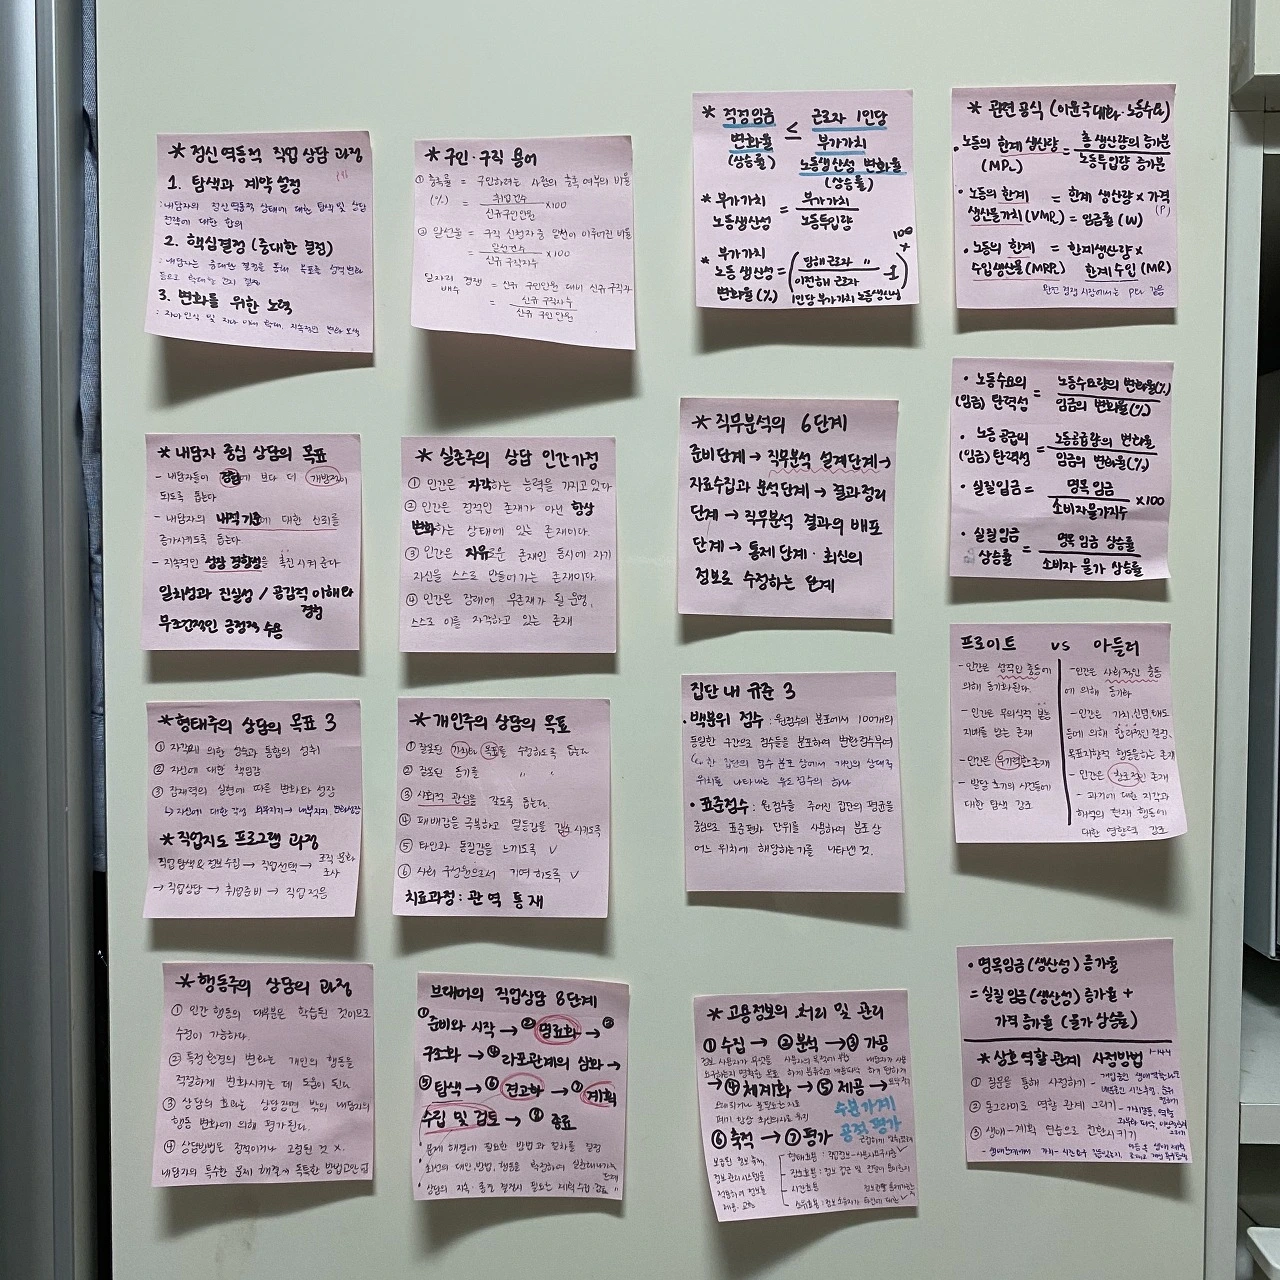 *정신역동적 직업 상담 과정
1. 탐색과 계약 설정
: 내담자의 정신역동적 상태에 대한 탐색 및 상담
전략에 대한 합의
2. 핵심결정 (중대한 결정)
: 내담자는 중대한 결정을 통해 목표를 성격변화
등으로 확대할 건지 결정
3. 변화를 위한 노력
: 자아 인식 및 자아 이해 확대, 지속적인 변화 모색
* 구인·구직 용어
① 충족률 = 구인하려는 사람의 충족 여부의 비율
(%) = 취업건수
신규구인인원 ×100
② 알선률 = 구직 신청자 중 알선이 이루어진 비율
= 알선건수
신규 구직자수 ×100
일자리 경쟁
배수 = 신규 구인인원 대비 신규 구직자
= 신규 구직자수
신규 구인인원
* 적정임금 ≤ 근로자 1인당
변화율 부가가치
(상승률) 노동생산성 변화율
(상승률)
* 부가가치 = 부가가치
노동생산성 노동투입량
* 부가가치 100
노동 생산성 = (당해 근로자 〃 -1) +
변화율(%) 이전해 근로자
1인당 부가가치 노동생산성
* 관련 공식 (이윤극대화·노동수요)
· 노동의 한계 생산량 = 총 생산량의 증가분
(MPL) 노동투입량 증가분
· 노동의 한계 = 한계 생산량 × 가격
생산물가치(VMPL) = 임금률 (W) (P)
· 노동의 한계 = 한계생산량 ×
수입생산물(MRPL) 한계 수입 (MR)
완전 경쟁 시장에서는 P와 같음
· 노동수요의 = 노동수요량의 변화율(%)
(임금) 탄력성 임금의 변화율(%)
· 노동 공급의 = 노동공급량의 변화율
(임금) 탄력성 임금의 변화율(%)
· 실질임금 = 명목 임금 ×100
소비자물가지수
· 실질임금 = 명목 임금 상승률
상승률 소비자 물가 상승률
* 내담자 중심 상담의 목표
- 내담자들이 경험에 보다 더 개방적이
되도록 돕는다
- 내담자의 내적기준에 대한 신뢰를
증가시키도록 돕는다
- 지속적인 성장 경향성을 촉진시켜 준다
일치성과 진실성 / 공감적 이해와
경청
무조건적인 긍정적 수용
* 실존주의 상담 인간가정
① 인간은 자각하는 능력을 가지고 있다
② 인간은 정적인 존재가 아닌 항상
변화하는 상태에 있는 존재이다.
③ 인간은 자유로운 존재인 동시에 자기
자신을 스스로 만들어가는 존재이다.
④ 인간은 장래에 무존재가 될 운명,
스스로 이를 자각하고 있는 존재
* 직무분석의 6단계
준비단계 → 직무분석 설계단계→
자료수집과 분석단계 → 결과정리
단계 → 직무분석 결과의 배포
단계 → 통제 단계·최신의
정보로 수정하는 단계
프로이트 vs 아들러
- 인간은 성적인 충동에
의해 동기화된다.
- 인간은 무의식적 본능
지배를 받는 존재
- 인간은 무기력한 존재
- 발달 초기의 사건들에
대한 탐색 강조
- 인간은 사회적인 충동
에 의해 동기화
- 인간은 가치,신념,태도
등에 의해 합리적인 결정,
목표지향적 행동을하는 존재
- 인간은 창조적인 존재
- 과거에 대한 지각과
해석의 현재 행동에
대한 영향력 강조
*형태주의 상담의 목표 3
① 자각에 의한 성숙과 통합의 성취
② 자신에 대한 책임감
③ 잠재력의 실현에 따른 변화와 성장
↳ 자신에 대한 각성 외부지지 → 내부지지 변화성장
*직업지도 프로그램 과정
직업탐색&정보수집 → 직업선택 → 조직 문화
조사
→ 직업상담 → 취업준비 → 직업적응
* 개인주의 상담의 목표
① 잘못된 가치와 목표를 수정하도록 돕는다
② 잘못된 동기를 〃 〃
③ 사회적 관심을 갖도록 돕는다.
④ 패배감을 극복하고 열등감을 감소시키도록
⑤ 타인과 동질감을 느끼도록 ✓
⑥ 사회 구성원으로서 기여하도록 ✓
치료과정: 관 역 통 재
집단 내 규준 3
· 백분위 점수 : 원점수의 분포에서 100개의
동일한 구간으로 점수들을 분포하여 변환점수부여
한 집단의 점수 분포 상에서 개인의 상대적
위치를 나타내는 유도 점수의 하나
· 표준점수 : 원점수를 주어진 집단의 평균을
중심으로 표준편차 단위를 사용하여 분포상
어느 위치에 해당하는가를 나타낸 것.
*행동주의 상담의 과정
① 인간 행동의 대부분은 학습된 것이므로
수정이 가능하다.
② 특정환경의 변화는 개인의 행동을
적절하게 변화시키는 데 도움이 된다
③ 상담의 효과는 상담장면 밖의 내담자의
행동 변화에 의해 평가된다.
④ 상담방법은 정적이거나 고정된 것 X.
내담자의 특수한 문제 해결→ 독특한 방법고안
브래머의 직업상담 8단계
① 준비와 시작 → ② 명료화 → ③
구조화 → ④ 라포관계의 심화 →
⑤ 탐색 → ⑥ 견고화 → ⑦ 계획
수립 및 검토 → ⑧ 종료
문제 해결에 필요한 방법과 절차를 결정
* 고용정보의 처리 및 관리
① 수집 → ② 분석 → ③ 가공
→ ④ 체계화 → ⑤ 제공 →
수분가체
공축평가
⑥ 축적 → ⑦ 평가
· 명목임금(생산성) 증가율
= 실질 임금(생산성) 증가율 +
가격 증가율 (물가 상승률)
* 상호 역할관계 사정방법 1-144
① 질문을 통해 사정하기
② 동그라미로 역할 관계 그리기
③ 생애-계획 연습으로 전환시키기